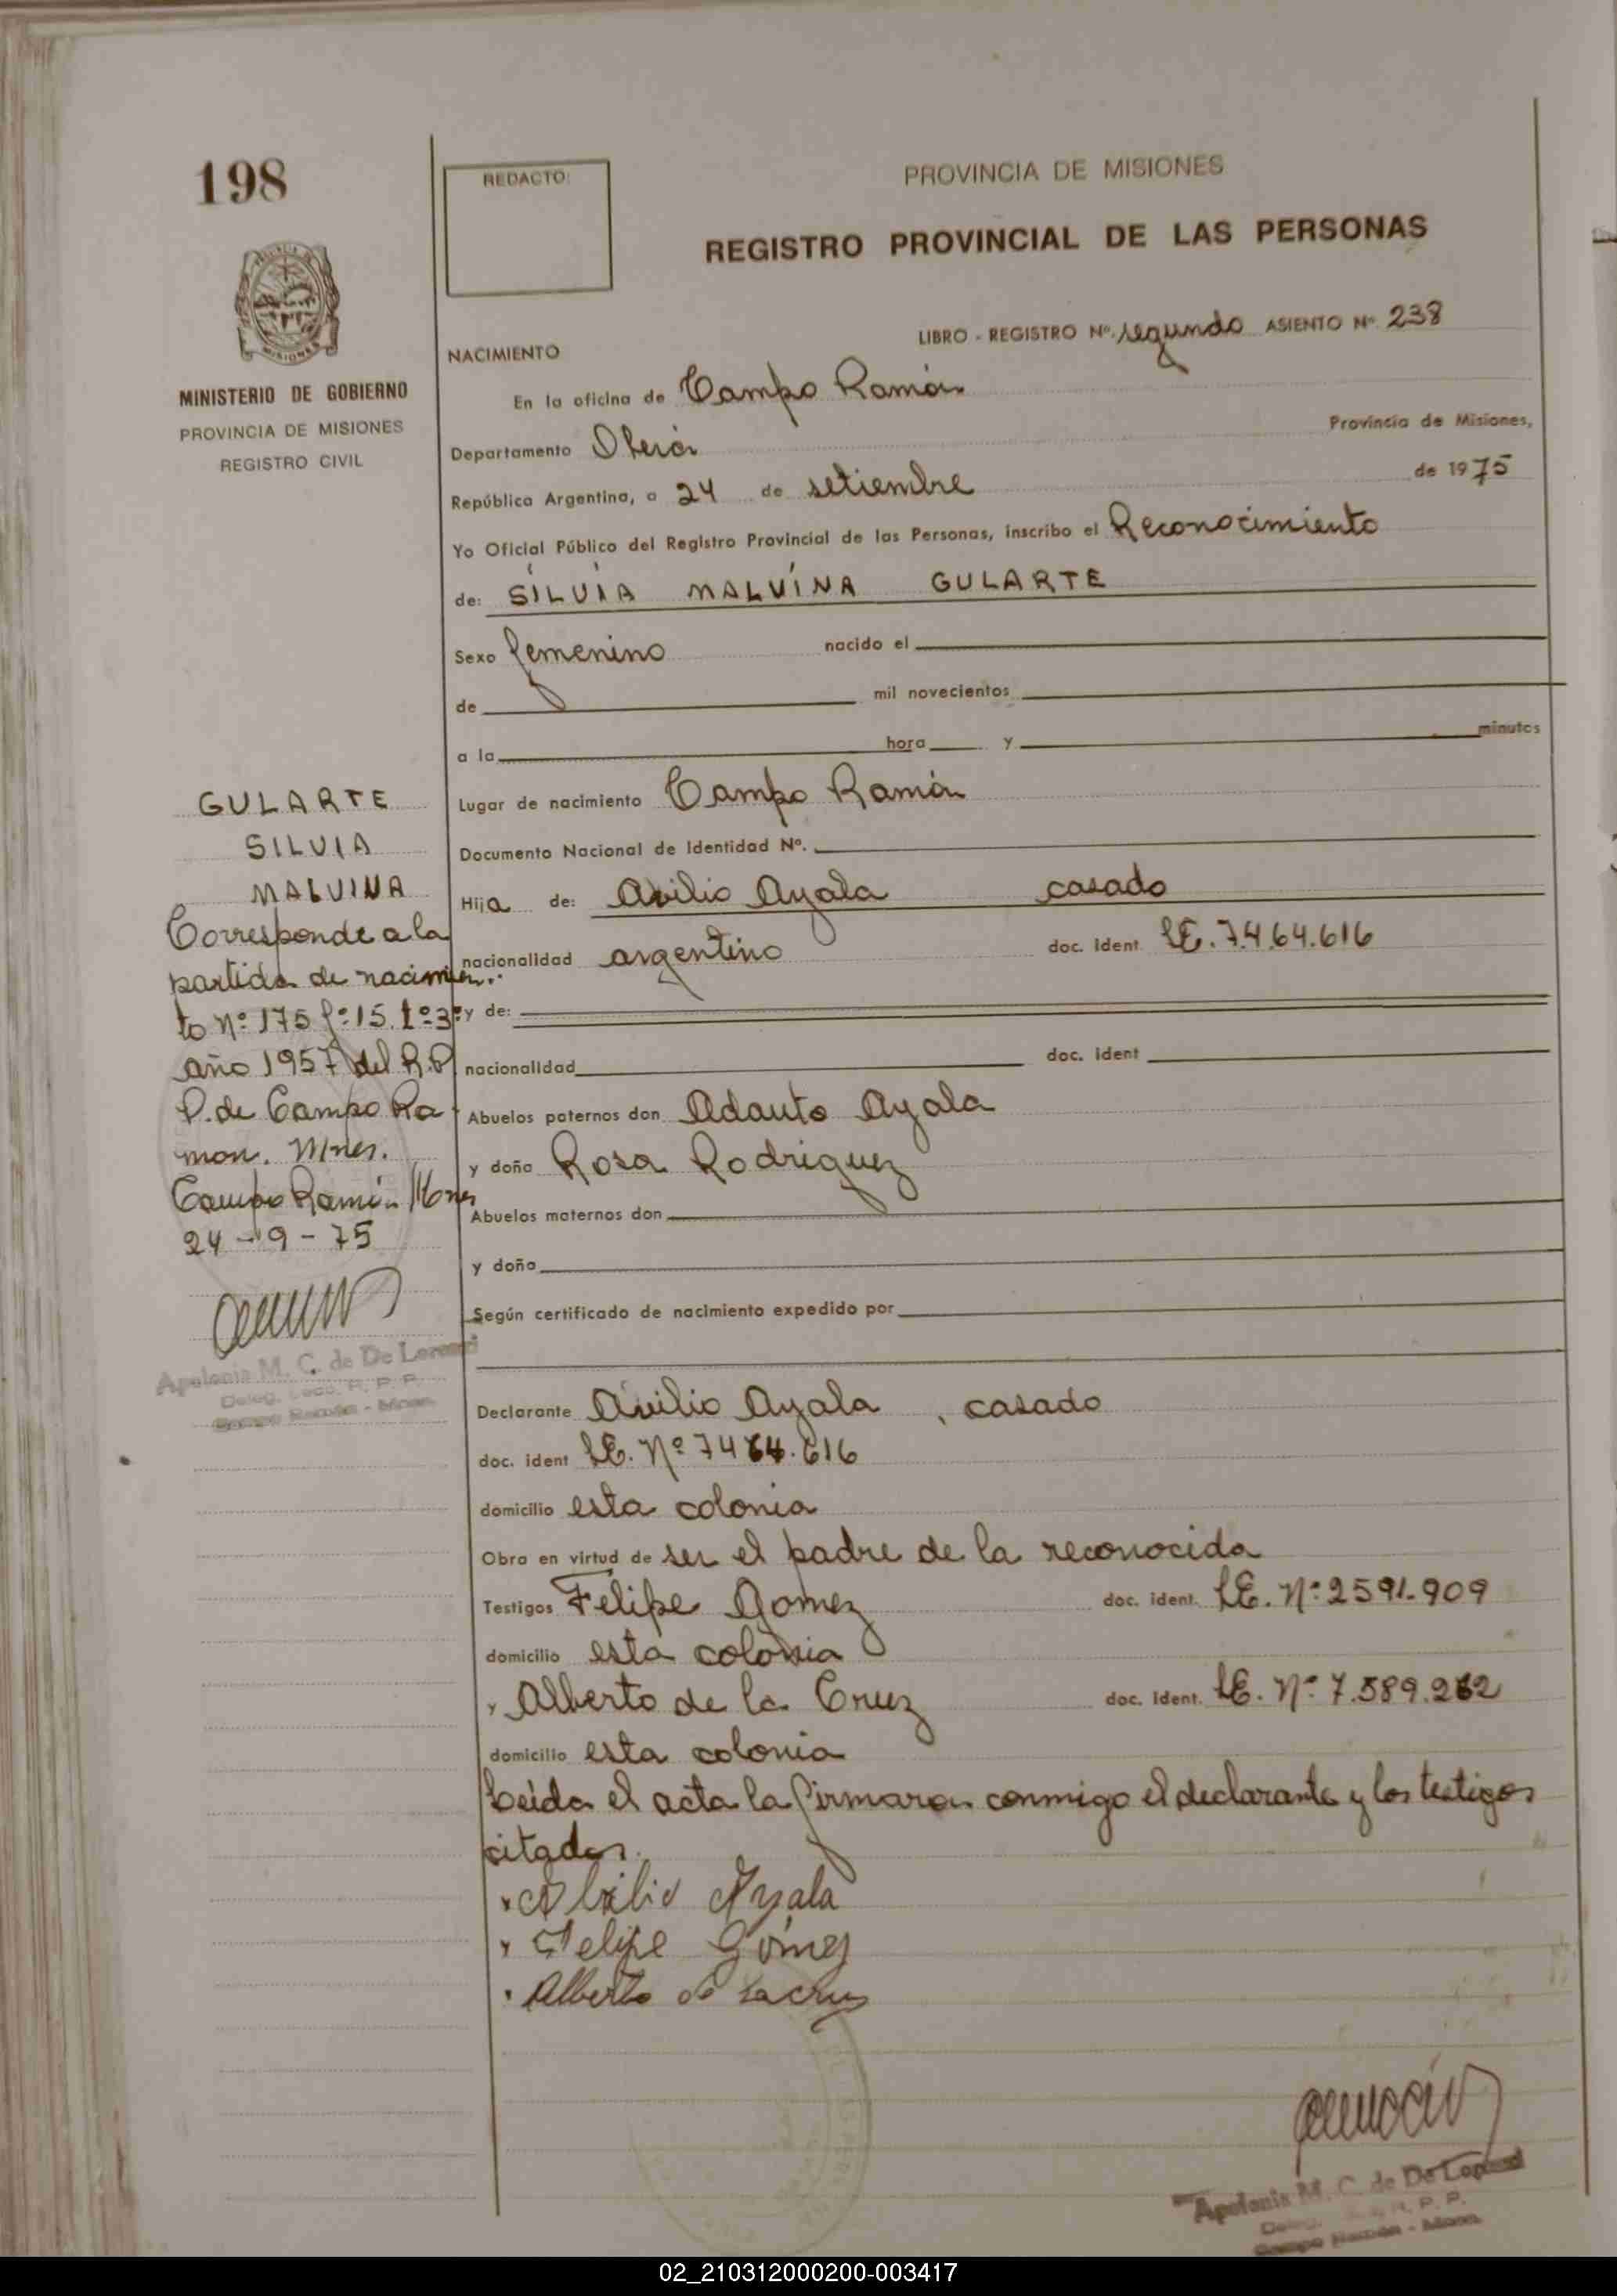 198
REDACTO:
PROVINCIA DE MISIONES
REGISTRO PROVINCIAL DE LAS PERSONAS
MINISTERIO DE GOBIERNO
PROVINCIA DE MISIONES
REGISTRO CIVIL
LIBRO - REGISTRO Nº. segundo ASIENTO Nº 238
NACIMIENTO
En la oficina de Campo Ramón
Departamento Oberá Provincia de Misiones,
República Argentina, a 24 de setiembre de 1975
Yo Oficial Público del Registro Provincial de las Personas, inscribo el Reconocimiento
de: SILVIA MALVINA GULARTE
Sexo femenino nacido el
de mil novecientos
a la hora y minutos
Lugar de nacimiento Campo Ramón
Documento Nacional de Identidad Nº.
Hija de: Avilio Ayala casado
nacionalidad argentino doc. ident. LE. 7.464.616
y de:
nacionalidad doc. ident
Abuelos paternos don Adauto Ayala
y doña Rosa Rodriguez
Abuelos maternos don
y doña
Según certificado de nacimiento expedido por
GULARTE
SILVIA
MALVINA
Corresponde a la
partida de nacimien-
to Nº 175 fº 15. tº 3º
año 1957 del R.P
P. de Campo Ra-
mon. Mnes.
Campo Ramón Mnes
24 - 9 - 75
Apolonia M. C. de De Lorenzi
Deleg. R. P. P.
Campo Ramón - Mnes.
Declarante Avilio Ayala , casado
doc. ident LE. Nº 7464.616
domicilio esta colonia
Obra en virtud de ser el padre de la reconocida
Testigos Felipe Gomez doc. ident. LE. Nº 2591.909
domicilio esta colonia
y Alberto de la Cruz doc. ident. LE. Nº 7.589.262
domicilio esta colonia
Leída el acta la firmaron conmigo el declarante y los testigos
citados.
Abilio Ayala
Felipe Gómez
Alberto de Lacruz
Apolonia M. C. de De Lorenzi
Deleg. R. P. P.
Campo Ramón - Mnes.
02_210312000200-003417